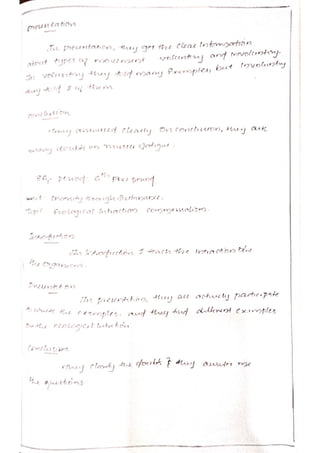 Presentation
In Presentation, they get the clear information
about types of movement voluntary and involuntary.
In voluntary they told many Examples, but Involuntary
they told 2 of them
Conclusion
They answered clearly On conclusion, they ask
many doubts on muscle fatigue.
Period: 6th
Unit
Topic: Ecological Intraction commensalism.
Introduction
In Introduction I teach the intraction
the organisms.
Presentation
In presentation, they all actively participate
the examples. and they different examples
in the ecological
Conclusion
They clearly the doubts & they answer me
the questions